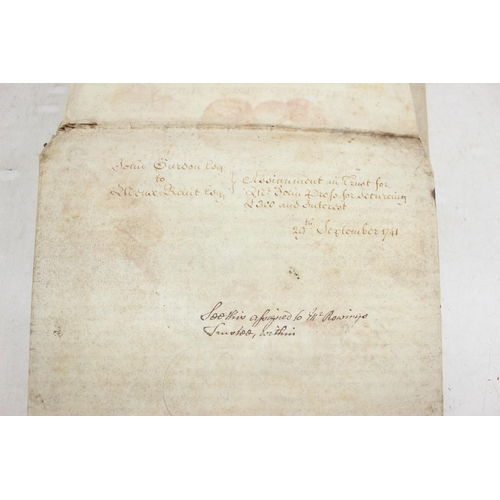 John Gurdon Esq.
to
Rant Esq.
Assignment in Trust for
Mr. John Press for securing
£300 and Interest
29th September 1741
See this assigned to Mr. Rewings
Trustee, within